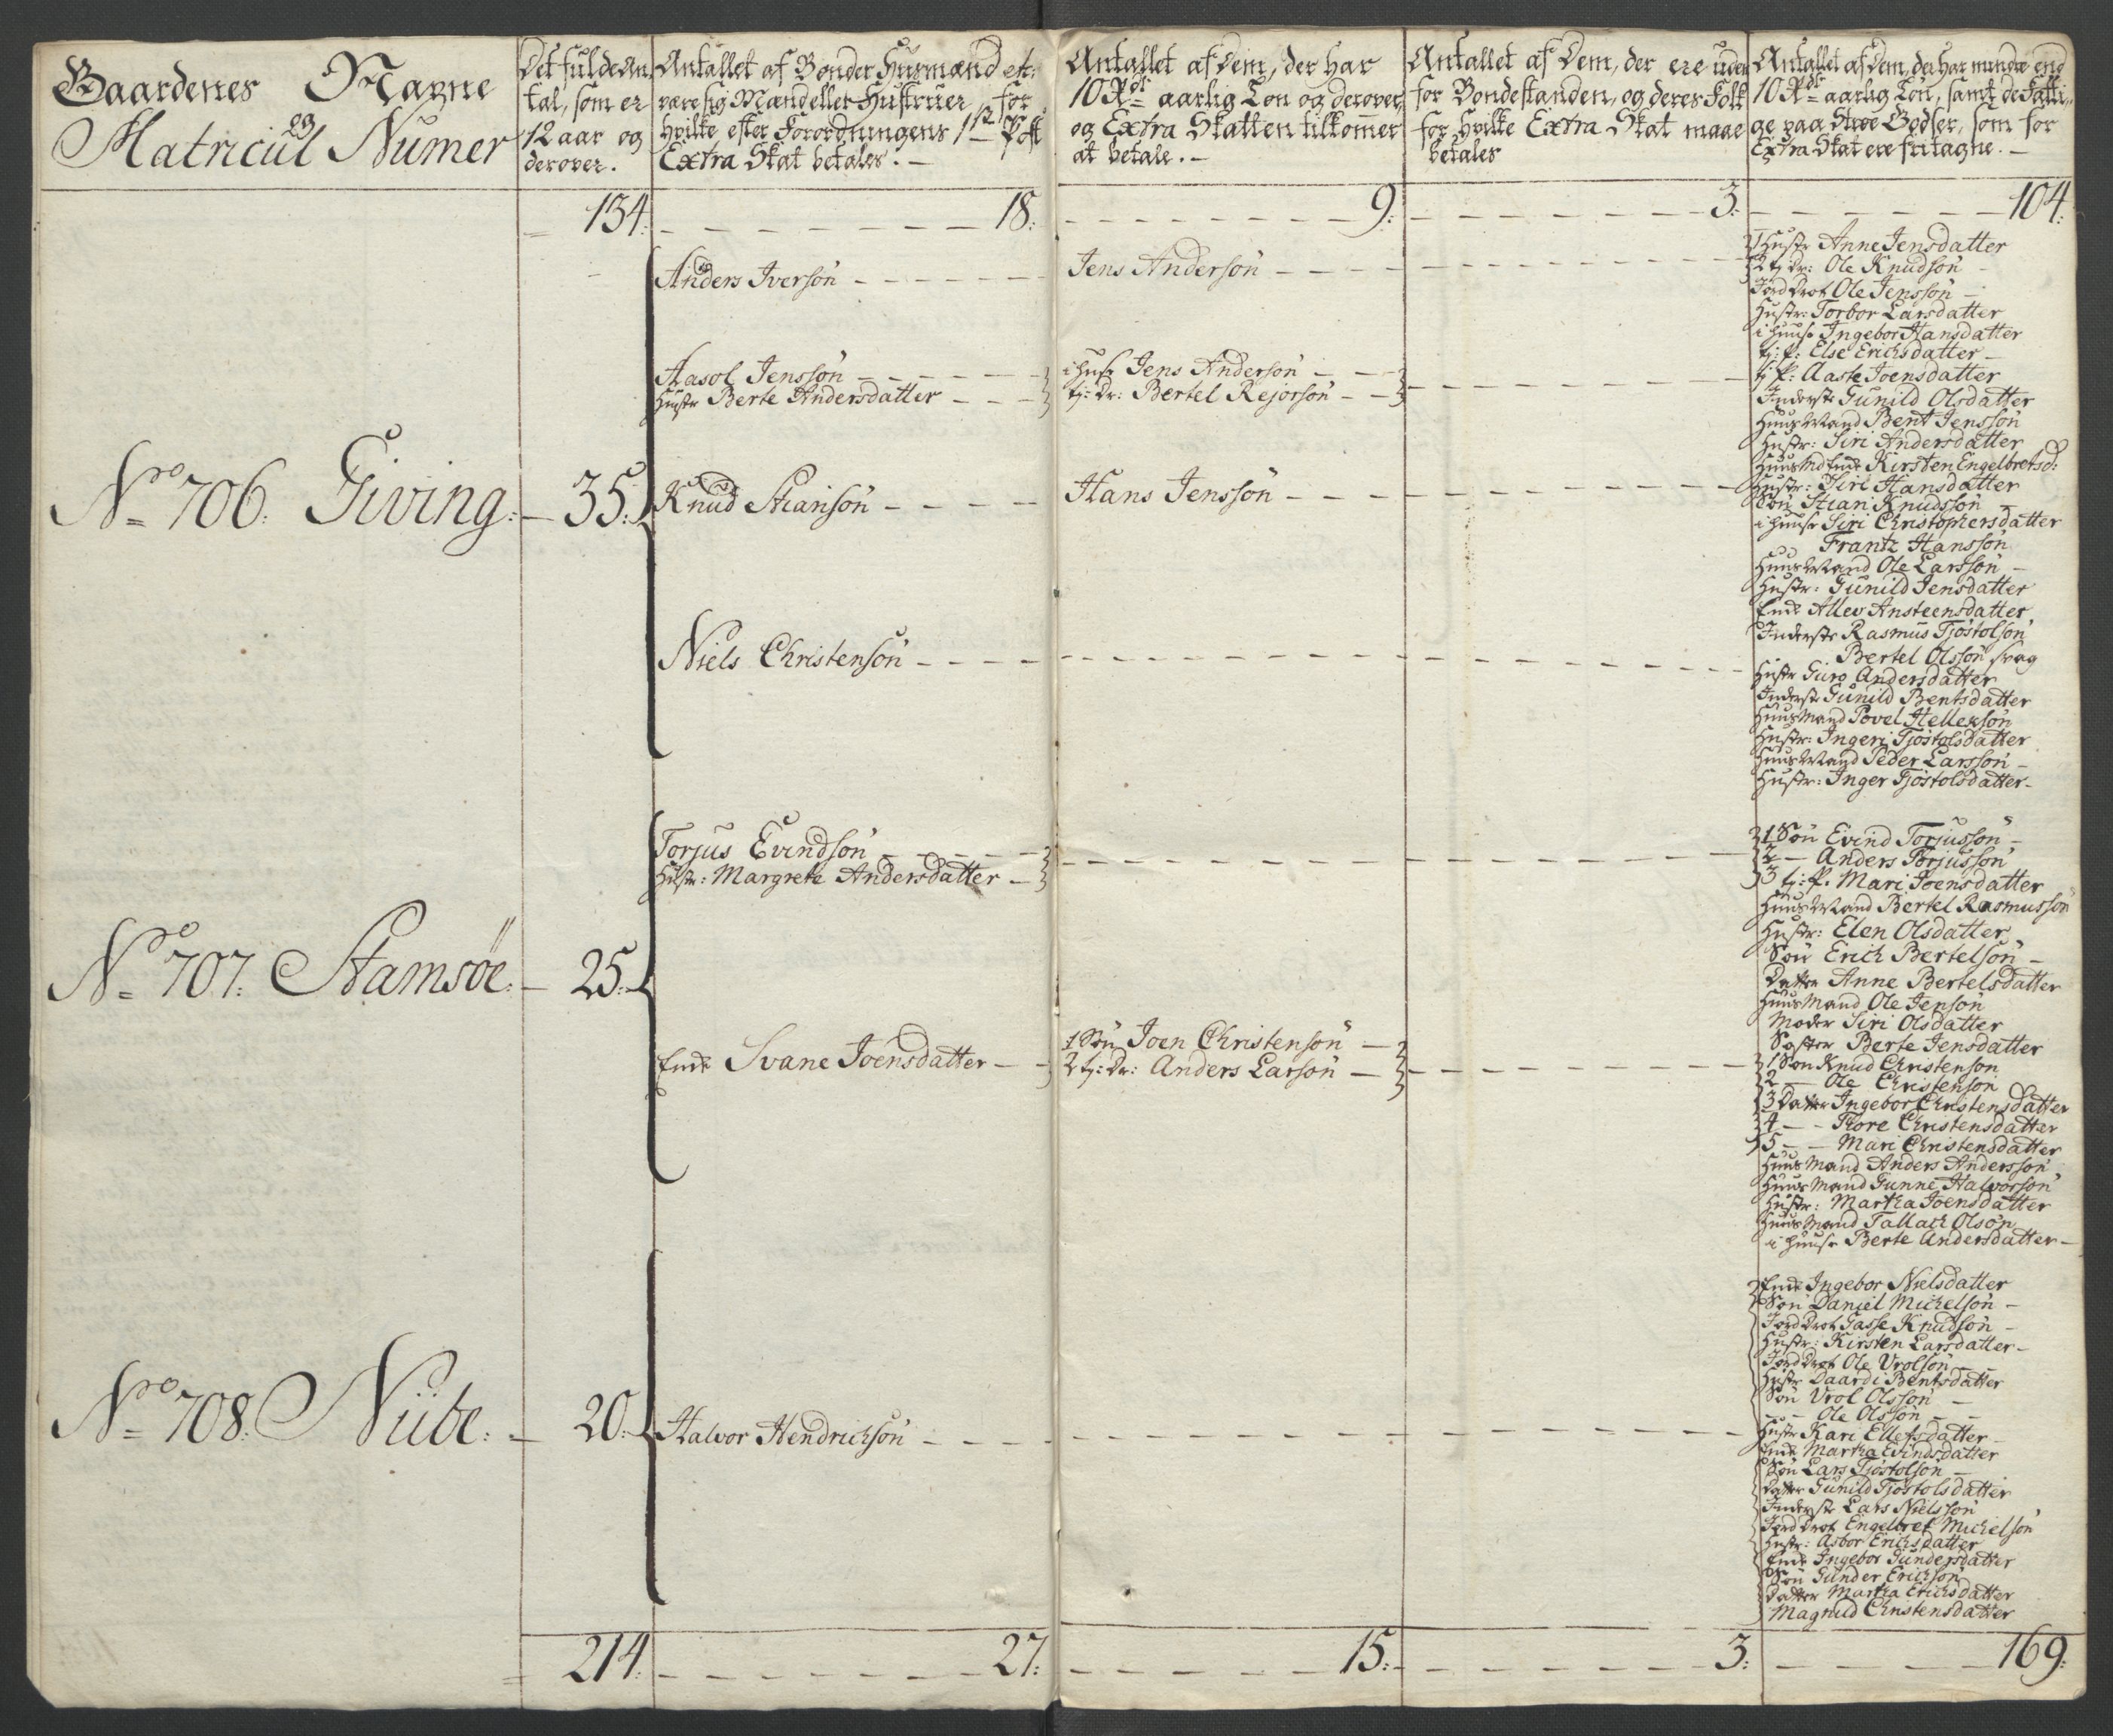 Gaardenes Nagne
og
Matricul Numer
Det fulde An
tal, som er
12 aar og
derover.
Antallet af Bønder Husmænd etc:
være sig Mænd eller Hustruer, for
hvilke efter Forordningens 1ste Post
Extra Skat betales. —
Antallet af Dem, der har
10 Rdr aarlig Løn og derover,
og Extra Skatten tilkommer
at betale. —
Antallet af Dem, der ere uden
for Bondestanden, og deres Folk
for hvilke Extra Skat maae
betales
Antallet af Dem, der har mindre end
10 Rdr aarlig Løn, samt de Fatti-
ge paa Strøe Godser, som for
Extra Skat ere fritagne. —
134. 18. 9. 3. 104.
No 706. Giving. 35.
Anders Iversøn
Aasol Jenssøn
Hustr Berte Andersdatter
Knud Stiansøn
Niels Christensøn
Jens Andersøn
i huse Jens Andersøn
tj: Dr: Bertel Rejorsøn
Hans Jenssøn
1 Hustr Anne Jensdatter
2 tj: Dr: Ole Knudsøn
Jord Drot Ole Jenssøn
Hustr: Torbor Larsdatter
i huuse Ingebor Hansdatter
tj: P: Else Erichsdatter
tj P: Aaste Joensdatter
Inderste Gunild Olsdatter
HuusMand Bent Jenssøn
Hustr: Siri Andersdatter
Huus Md Enke Kirsten Engelbretsd:
Hustr: Siri Hansdatter
Søn Stian Knudssøn
i huuse Siri Christophersdatter
Frantz Hanssøn
HuusMand Ole Larssøn
Hustr: Gunild Jensdatter
Enke Allev Ansteensdatter
Inderste Rasmus Tjøstolsøn
Bertel Olssøn svag
Hustr Guro Andersdatter
Inderst Gunild Bentsdatter
HuusMand Povel Helleksøn
Hustr: Ingeri Tjøstolsdatter
HuusMand Peder Larssøn
Hustr: Inger Tjøstolsdatter
No 707. Stamsøe. 25.
Torjus Evindsøn
Hustr: Margrete Andersdatter
Enke Svane Joensdatter
1 Søn Joen Christensøn
2 tj: Dr: Anders Larsøn
1 Søn Evind Torjussøn
2 — Anders Torjussøn
3 tj: P. Mari Joensdatter
HuusMand Bertel Rasmussøn
Hustr: Elen Olsdatter
Søn Erich Bertelsøn
Datter Anne Bertelsdatter
HuusMand Ole Jensøn
Moder Siri Olsdatter
Søster Berte Jensdatter
1 Søn Knud Christensøn
2 — Ole Christensøn
3 Datter Ingebor Christensdatter
4 — Tore Christensdatter
5 — Mari Christensdatter
HuusMand Anders Anderssøn
HuusMand Gunne Halvorsøn
Hustr: Martha Joensdatter
HuusMand Tallack Olsøn
i huuse Berte Andersdatter
No 708. Nübe. 20.
Halvor Hendrichsøn
Enke Ingebor Nielsdatter
Søn Daniel Michelsøn
Jord Drot Gasse Knudsøn
Hustr: Kirsten Larsdatter
Jord Drot Ole Vrolsøn
Hustr Daardi Bentsdatter
Søn Vrol Olssøn
— Ole Olssøn
Hustr Kari Ellefsdatter
Enke Martha Evindsdatter
Søn Lars Tjøstolsøn
Datter Gunild Tjøstolsdatter
Inderste Lars Nielssøn
Jord Drot Engelbret Michelsøn
Hustr: Asbor Erichsdatter
Enke Ingebor Gundersdatter
Søn Gunder Erichsøn
Datter Martha Erichsdatter
Magnild Christensdatter
214. 27. 15. 3. 169.